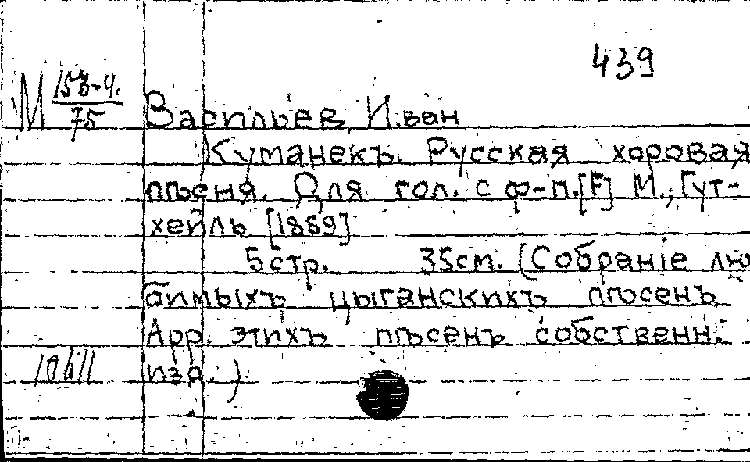 439
М 153-4.
75
Васильев, Иван
Куманекъ. Русская хоровая
пѣсня. Для гол. с ф-п.[F] М., Гут-
хейль [1869]
5 стр. 35 см. (Собраніе лю
бимыхъ цыганскихъ пѣсенъ
Арр. этихъ пѣсенъ собственн.
изд.)